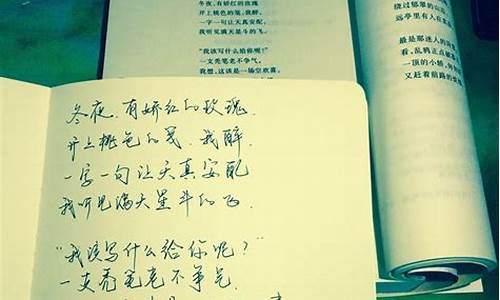 冬夜,有娇红的玫瑰
开上桃色的笺,我醉,
一字一句让天真安配,
我听见满天星斗的飞。
"我该写什么给你呢?"
一支秃笔老不争气,
我想,这该是一场空欢喜,
绕过郁郁的山
远亭里有人在
最是那迷人的
看,乱鸦正点破
一顶的小轿,
又赶着前路的
冬夜,有娇红的玫瑰,
开上桃色的笺,我醉,
一字一句让天真安配
我听见满天星斗的飞,
"我该写什么给你呢?"
一支秃笔老不争气,